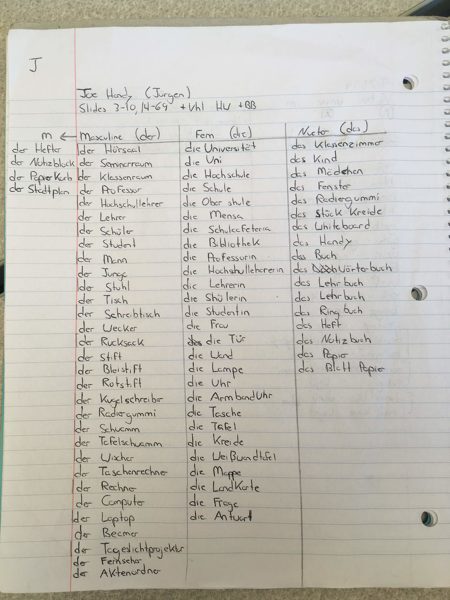 J
Joe Handy (Jürgen)
Slides 3-10, 14-69 + Vhl HW + BB
m ← Masculine (der) Fem (die) Neuter (das)
der Hefter der Hörsaal die Universität das Klassenzimmer
der Notizblock der Seminarraum die Uni das Kind
der Papierkorb der Klassenraum die Hochschule das Mädchen
der Stadtplan der Professor die Schule das Fenster
der Hochschullehrer die Ober shule das Radiergummi
der Lehrer die Mensa das Stück Kreide
der Schüler die Schulcafeteria das Whiteboard
der Student die Bibliothek das Handy
der Mann die Professorin das Buch
der Junge die Hochshullehrerin das Wörterbuch
der Stuhl die Lehrerin das Lehrbuch
der Tisch die Shülerin das Lehrbuch
der Schreibtisch die Studentin das Ringbuch
der Wecker die Frau das Heft
der Rucksack die Tür das Notizbuch
der Stift die Wand das Papier
der Bleistift die Lampe das Blatt Papier
der Rotstift die Uhr
der Kugelschreiber die Armbanduhr
der Radiergummi die Tasche
der Schwamm die Tafel
der Tafelschwamm die Kreide
der Wischer die Weißwandtafel
der Taschenrechner die Mappe
der Rechner die Landkarte
der Computer die Frage
der Laptop die Antwort
der Beamer
der Tageslichtprojektor
der Fernseher
der Aktenordner